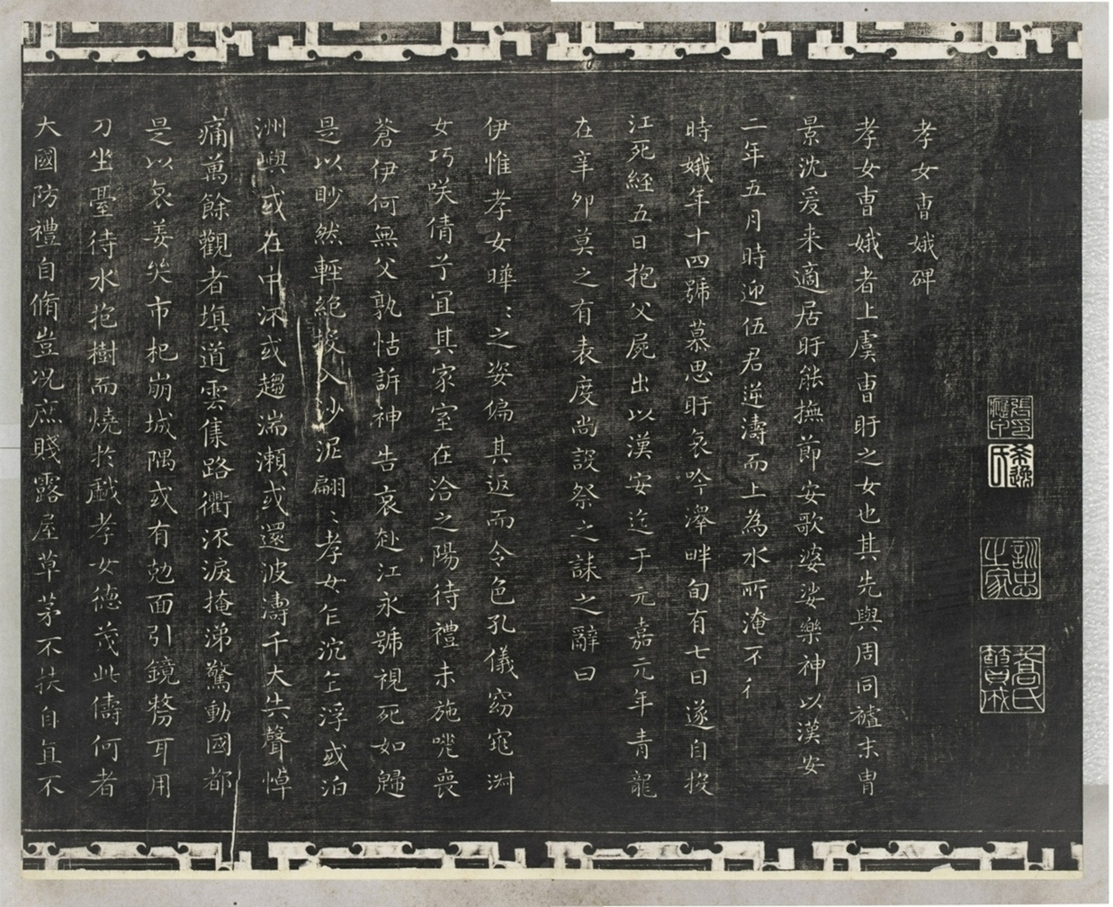 孝女曹娥碑
孝女曹娥者上虞曹盱之女也其先與周同祖末胄
景沈爰来適居盱能撫節安歌婆娑樂神以漢安
二年五月時迎伍君逆濤而上為水所淹不
時娥年十四號慕思盱哀吟澤畔旬有七日遂自投
江死経五日抱父屍出以漢安迄于元嘉元年青龍
在辛夘莫之有表度尚設祭之誄之辭曰
伊惟孝女曄〻之姿偏其返而令色孔儀窈窕淑
女巧咲倩兮宜其家室在洽之陽待禮未施嗟喪
蒼伊何無父孰怙訴神告哀赴江永號視死如歸
是以眇然輕絕投入沙泥翩〻孝女乍沉乍浮或泊
洲嶼或在中流或趨湍瀬或還波濤千夫失聲悼
痛萬餘觀者填道雲集路衢泝淚掩涕驚動國都
是以哀姜哭市杞崩城隅或有尅面引鏡剺耳用
刀坐臺待水抱樹而燒扵戯孝女德茂此儔何者
大國防禮自脩豈况庶賤露屋草茅不扶自直不
訓忠之家
喬氏簣成